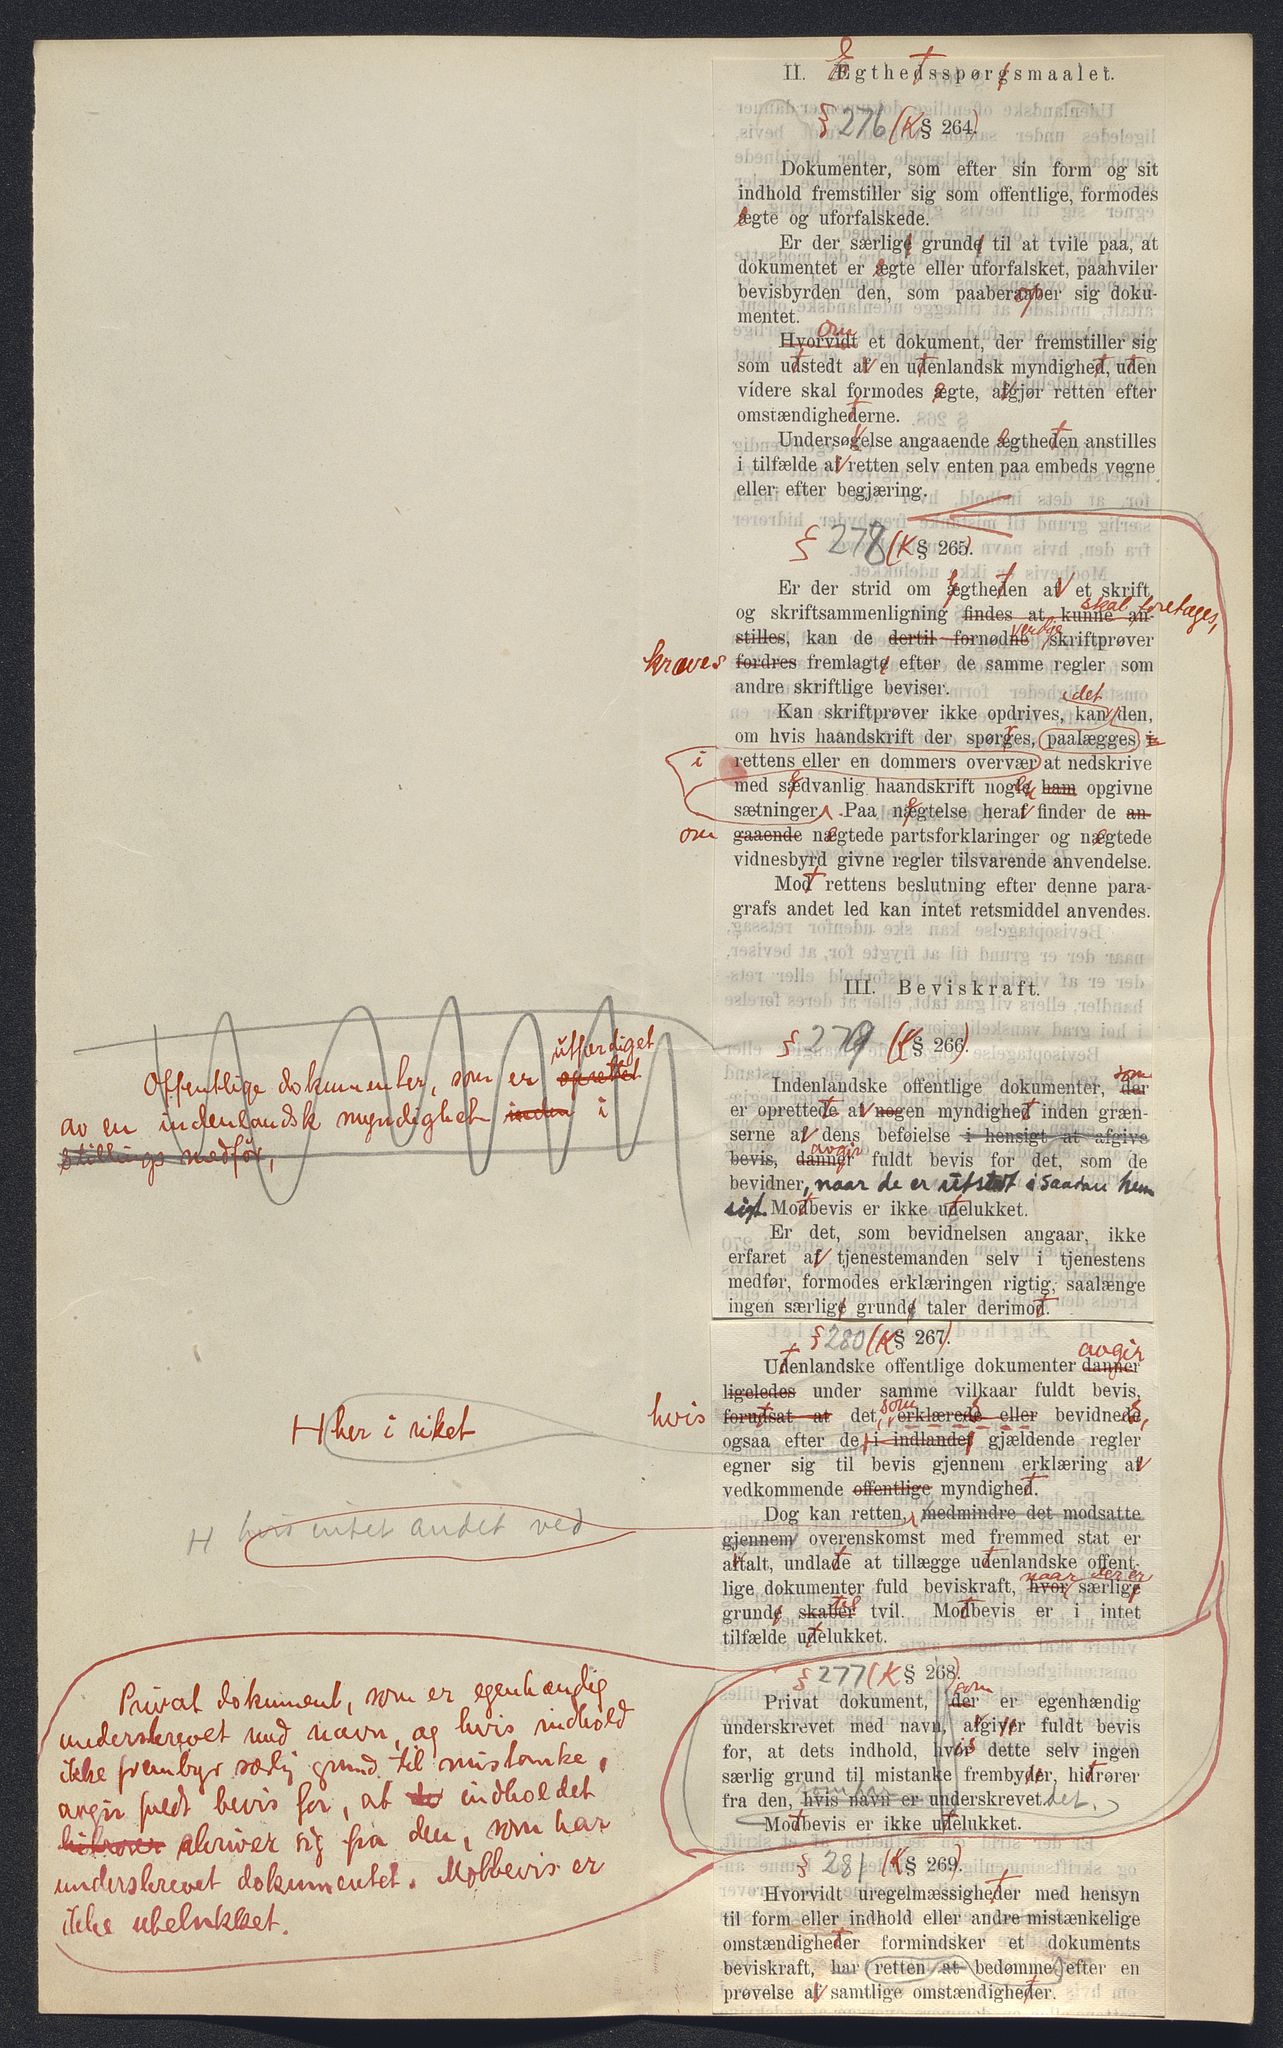 II. Egthedsspørgsmaalet.
§ 276 (K § 264).
Dokumenter, som efter sin form og sit
indhold fremstiller sig som offentlige, formodes
ægte og uforfalskede.
Er der særlige grunde til at tvile paa, at
dokumentet er ægte eller uforfalsket, paahviler
bevisbyrden den, som paaberaaber sig doku-
mentet.
om
Hvorvidt et dokument, der fremstiller sig
som udstedt af en udenlandsk myndighed, uden
videre skal formodes ægte, afgjør retten efter
omstændighederne.
Undersøgelse angaaende ægtheden anstilles
i tilfælde af retten selv enten paa embeds vegne
eller efter begjæring.
§ 278 (K § 265).
Er der strid om ægtheden af et skrift,
skal foretages,
og skriftsammenligning findes at kunne an-
stilles, kan de dertil fornødne skriftprøver
kræves fordres fremlagte efter de samme regler som
andre skriftlige beviser.
det
Kan skriftprøver ikke opdrives, kan den,
om hvis haandskrift der spørges, paalægges i
i rettens eller en dommers overvær at nedskrive
med sædvanlig haandskrift nogle ham opgivne
sætninger. Paa nægtelse heraf finder de an-
om gaaende nægtede partsforklaringer og nægtede
vidnesbyrd givne regler tilsvarende anvendelse.
Mod rettens beslutning efter denne para-
grafs andet led kan intet retsmiddel anvendes.
III. Beviskraft.
§ 279 (K § 266)
utfærdiget
Offentlige dokumenter, som er oprettet
av en indenlandsk myndighet inden i
stillings medfør,
som
Indenlandske offentlige dokumenter, der
er oprettede af nogen myndighed inden græn-
serne af dens beføielse i hensigt at afgive
avgir
bevis, danner fuldt bevis for det, som de
bevidner, naar de er utstedt i saadan hen
sigt. Modbevis er ikke udelukket.
Er det, som bevidnelsen angaar, ikke
erfaret af tjenestemanden selv i tjenestens
medfør, formodes erklæringen rigtig, saalænge
ingen særlige grunde taler derimod.
§ 280 (K § 267.)
avgir
Udenlandske offentlige dokumenter danner
ligeledes under samme vilkaar fuldt bevis,
som
hvis forudsat at det erklærede eller bevidnede,
H her i riket
ogsaa efter de i indlandet gjældende regler
egner sig til bevis gjennem erklæring af
vedkommende offentlige myndighed.
Dog kan retten, medmindre det modsatte
H hvis intet andet ved
gjennem overenskomst med fremmed stat er
aftalt, undlade at tillægge udenlandske offent-
naar der er
lige dokumenter fuld beviskraft, hvor særlige
til
grunde skaber tvil. Modbevis er i intet
tilfælde udelukket.
§ 277 (K § 268).
som
Privat dokument, der er egenhændig
underskrevet med navn, afgiver fuldt bevis
for, at dets indhold, hvor dette selv ingen
særlig grund til mistanke frembyder, hidrører
som har
fra den, hvis navn er underskrevet det.
Modbevis er ikke udelukket.
Privat dokument, som er egenhændig
underskrevet med navn, og hvis indhold
ikke frembyr særlig grund til mistanke,
avgir fuldt bevis for, at indholdet
hidrører skriver sig fra den, som har
underskrevet dokumentet. Motbevis er
ikke utelukket.
§ 281 (K § 269).
Hvorvidt uregelmæssigheder med hensyn
til form eller indhold eller andre mistænkelige
omstændigheder formindsker et dokuments
beviskraft, har retten at bedømme efter en
prøvelse af samtlige omstændigheder.